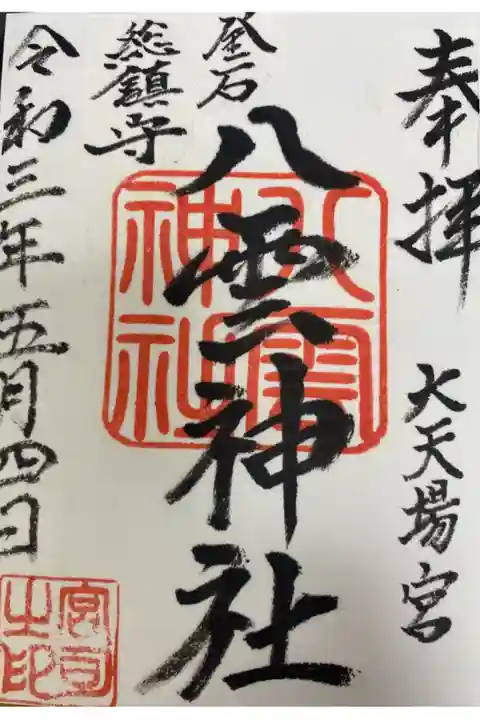 奉拝
大天場宮
釜石
八雲神社
総鎮守
令和三年五月四日
八雲
神社
宮司
之印